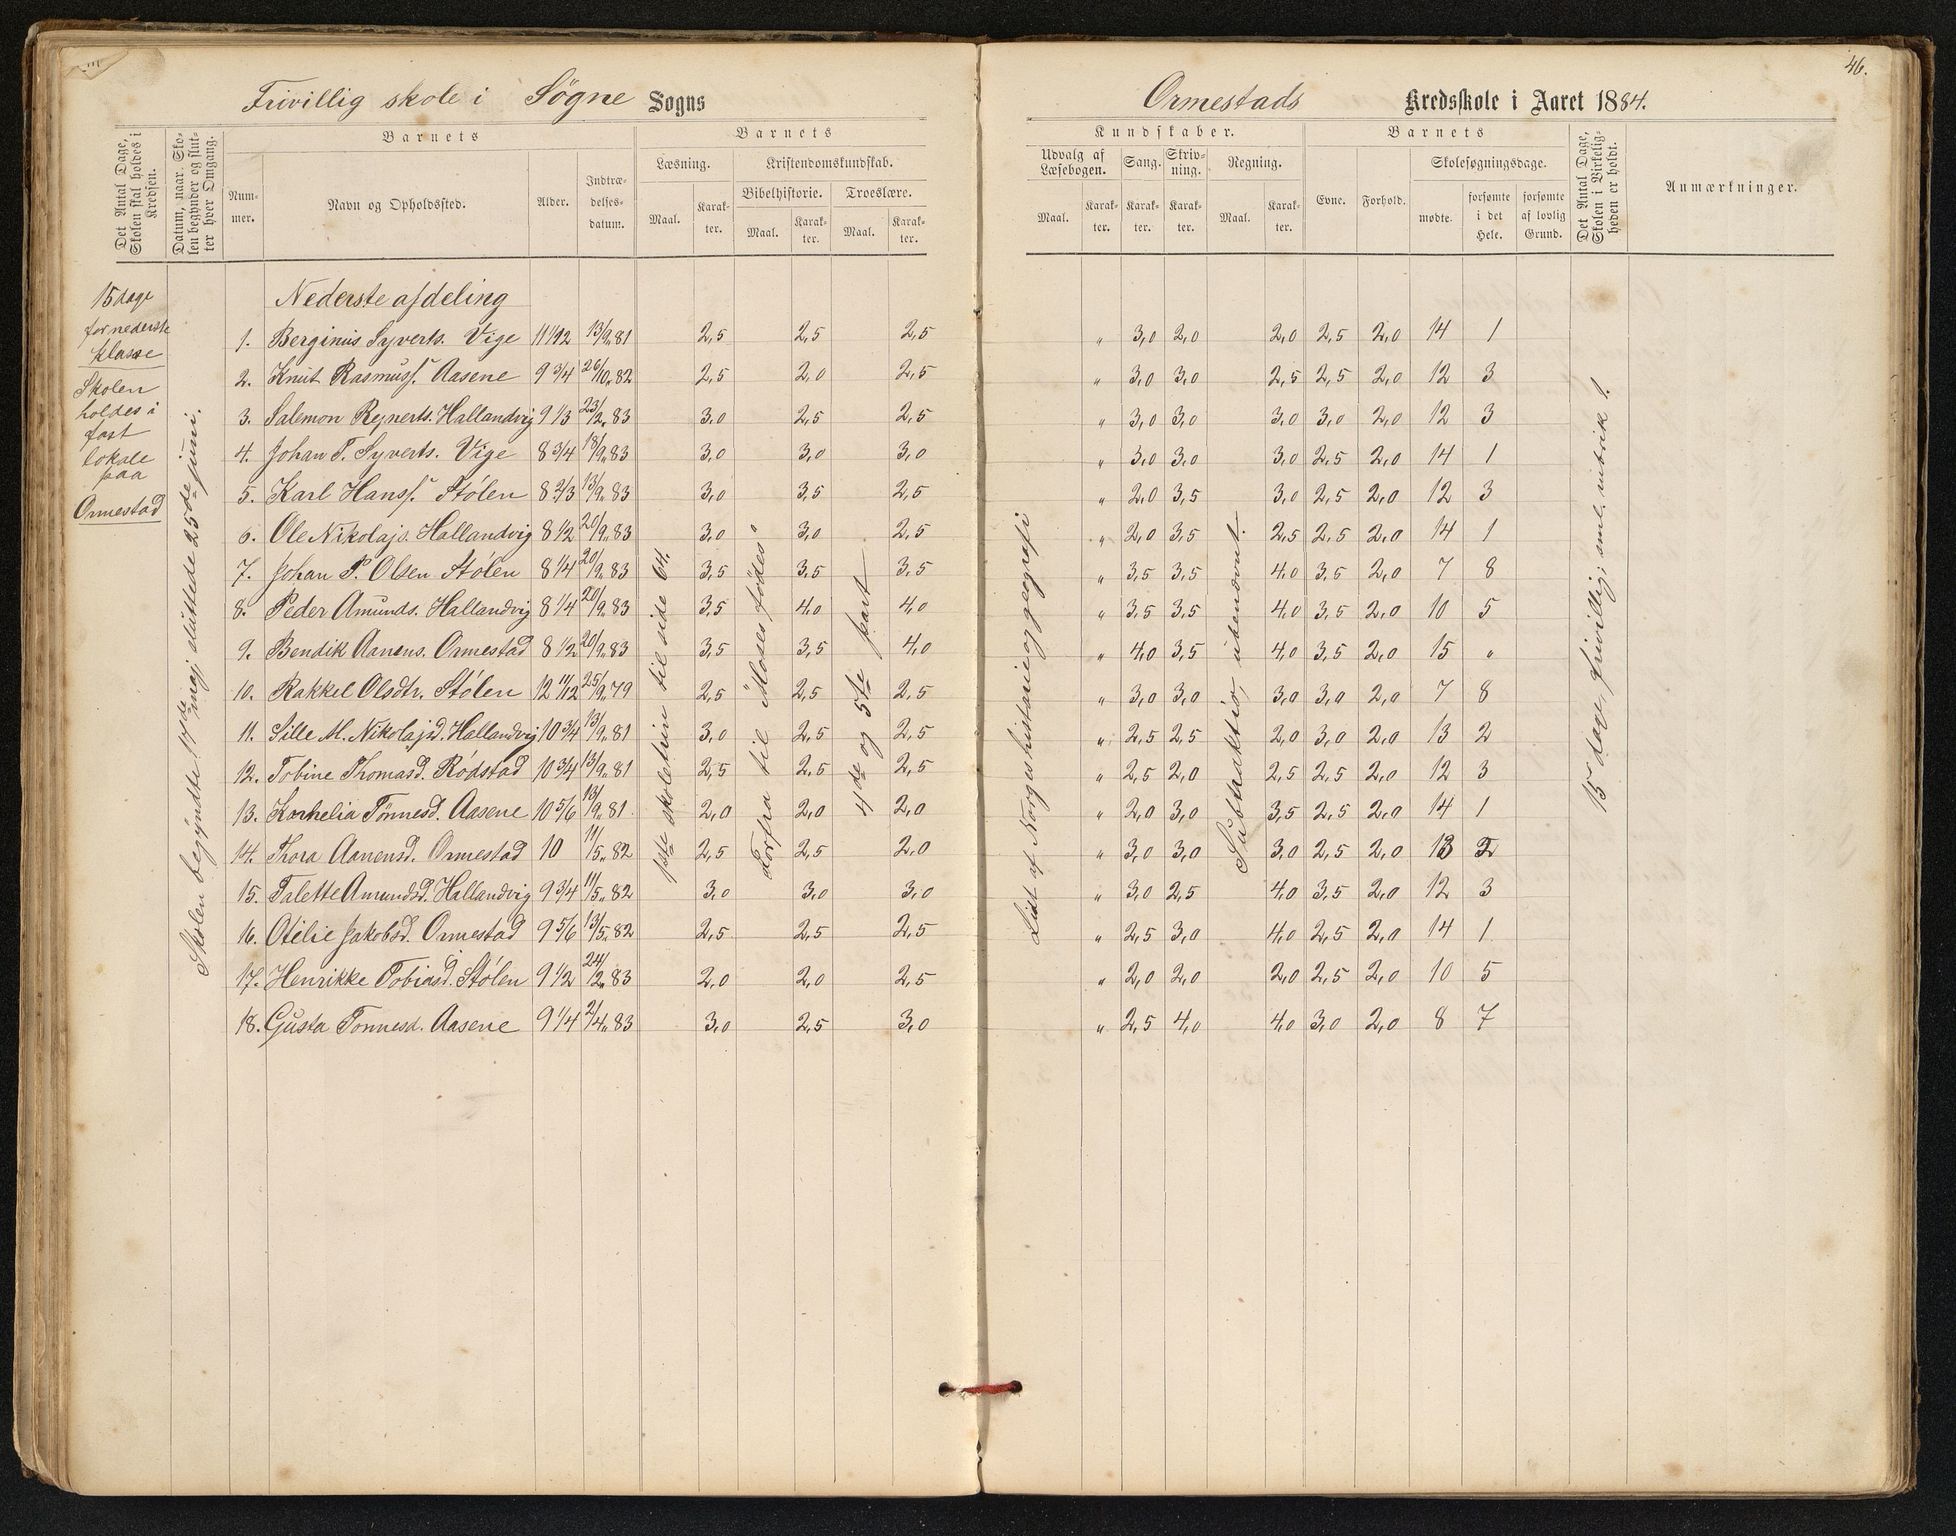 46.
Frivillig skole i Søgne Sogns
Ormestads Kredsskole i Aaret 1884.
Det Antal Dage, Skolen skal holdes i Kredsen.
Datum, naar Skolen begynder og slutter hver Omgang.
Barnets
Nummer.
Navn og Opholdssted.
Alder.
Indtrædelsesdatum.
Barnets
Læsning.
Maal.
Karakter.
Kristendomskundskab.
Bibelhistorie.
Maal.
Karakter.
Troeslære.
Maal.
Karakter.
Kundskaber.
Udvalg af Læsebogen.
Maal.
Karakter.
Sang.
Karakter.
Skrivning.
Karakter.
Regning.
Maal.
Karakter.
Barnets
Evne.
Forhold.
Skolesøgningsdage.
mødte.
forsømte i det Hele.
forsømte af lovlig Grund.
Det Antal Dage, Skolen i Virkeligheden er holdt.
Anmærkninger.
15 dage
for nederste
klasse
Skolen
holdes i
fast
lokale
paa
Ormestad
Skolen begyndte 17de maj sluttede 25de juni.
Nederste afdeling
1. Berginus Syverts. Vige 11 1/12 13/9. 81 2,5 2,5 2,5 " 3,0 2,0 2,0 2,5 2,0 14 1
2. Knut Rasmuss. Aasene 9 3/4 26/10. 82 2,5 2,0 2,5 " 3,0 3,0 2,5 2,5 2,0 12 3
3. Salemon Rejnerts. Hallandvig 9 1/3 23/2. 83 3,0 2,5 2,5 " 3,0 3,0 3,0 3,0 2,0 12 3
4. Johan T. Syverts. Vige 8 3/4 18/9. 83 3,0 3,0 3,0 " 3,0 3,0 3,0 2,5 2,0 14 1
5. Karl Hanss. Stølen 8 2/3 13/9. 83 3,0 3,5 2,5 " 2,0 3,5 3,0 2,5 2,0 12 3
6. Ole Nikolajs. Hallandvig 8 1/2 20/9. 83 3,0 3,0 2,5 " 2,0 3,5 2,5 2,5 2,0 14 1
7. Johan P. Olsen Stølen 8 1/4 20/9. 83 3,5 3,5 3,5 " 3,5 3,5 4,0 3,5 2,0 7 8
8. Peder Amunds. Hallandvig 8 1/4 20/9. 83 3,5 4,0 4,0 " 3,5 3,5 4,0 3,5 2,0 10 5
9. Bendik Aanens. Ormestad 8 1/2 20/9. 83 3,5 3,5 4,0 " 4,0 3,5 4,0 3,5 2,0 15 "
10. Rakkel Olsdtr. Stølen 12 11/12 25/9. 79 2,5 2,5 2,5 " 3,0 3,0 3,0 3,0 2,0 7 8
11. Sille M. Nikolajsd. Hallandvig 10 3/4 13/9. 81 3,0 2,5 2,5 " 2,5 2,5 2,0 3,0 2,0 13 2
12. Tobine Thomasd. Rødstad 10 3/4 13/9. 81 2,5 2,5 2,5 " 2,5 2,0 2,5 2,5 2,0 12 3
13. Kornelia Tønnesd. Aasene 10 5/6 13/9. 81 2,0 2,0 2,0 " 2,0 3,0 3,5 2,5 2,0 14 1
14. Thora Aanensd. Ormestad 10 11/5. 82 2,5 2,5 2,0 " 3,0 3,0 3,0 2,5 2,0 13 2
15. Talette Amundsd. Hallandvig 9 3/4 11/5. 82 3,0 3,0 3,0 " 3,0 2,5 4,0 3,5 2,0 12 3
16. Otilie Jakobsd. Ormestad 9 5/6 13/5. 82 2,5 2,5 2,5 " 2,5 3,0 4,0 2,5 2,0 14 1
17. Henrikke Tobiasd. Stølen 9 1/2 24/2. 83 2,0 2,0 2,5 " 2,0 2,0 2,0 2,5 2,0 10 5
18. Gusta Tønnesd. Aasene 9 1/4 2/4. 83 3,0 2,5 3,0 " 2,5 4,0 4,0 3,0 2,0 8 7
1ste skoletrin til side 64.
Forfra til "Moses fødes"
4de og 5te part
Lidt af Norges historie og geografi
Subtraktion, udenadvnt.
15 dage, frivillig; sml. rubrik 1.